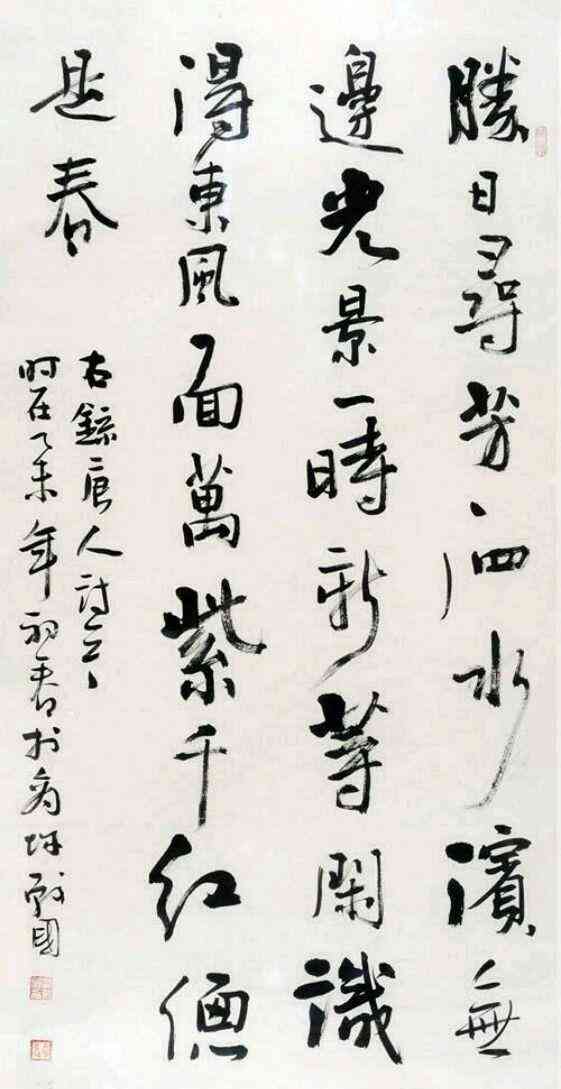 勝日尋芳泗水濱無
邊光景一時新等閑識
得東風面萬紫千红總
是春
右錄唐人詩
时在乙未年初春於國